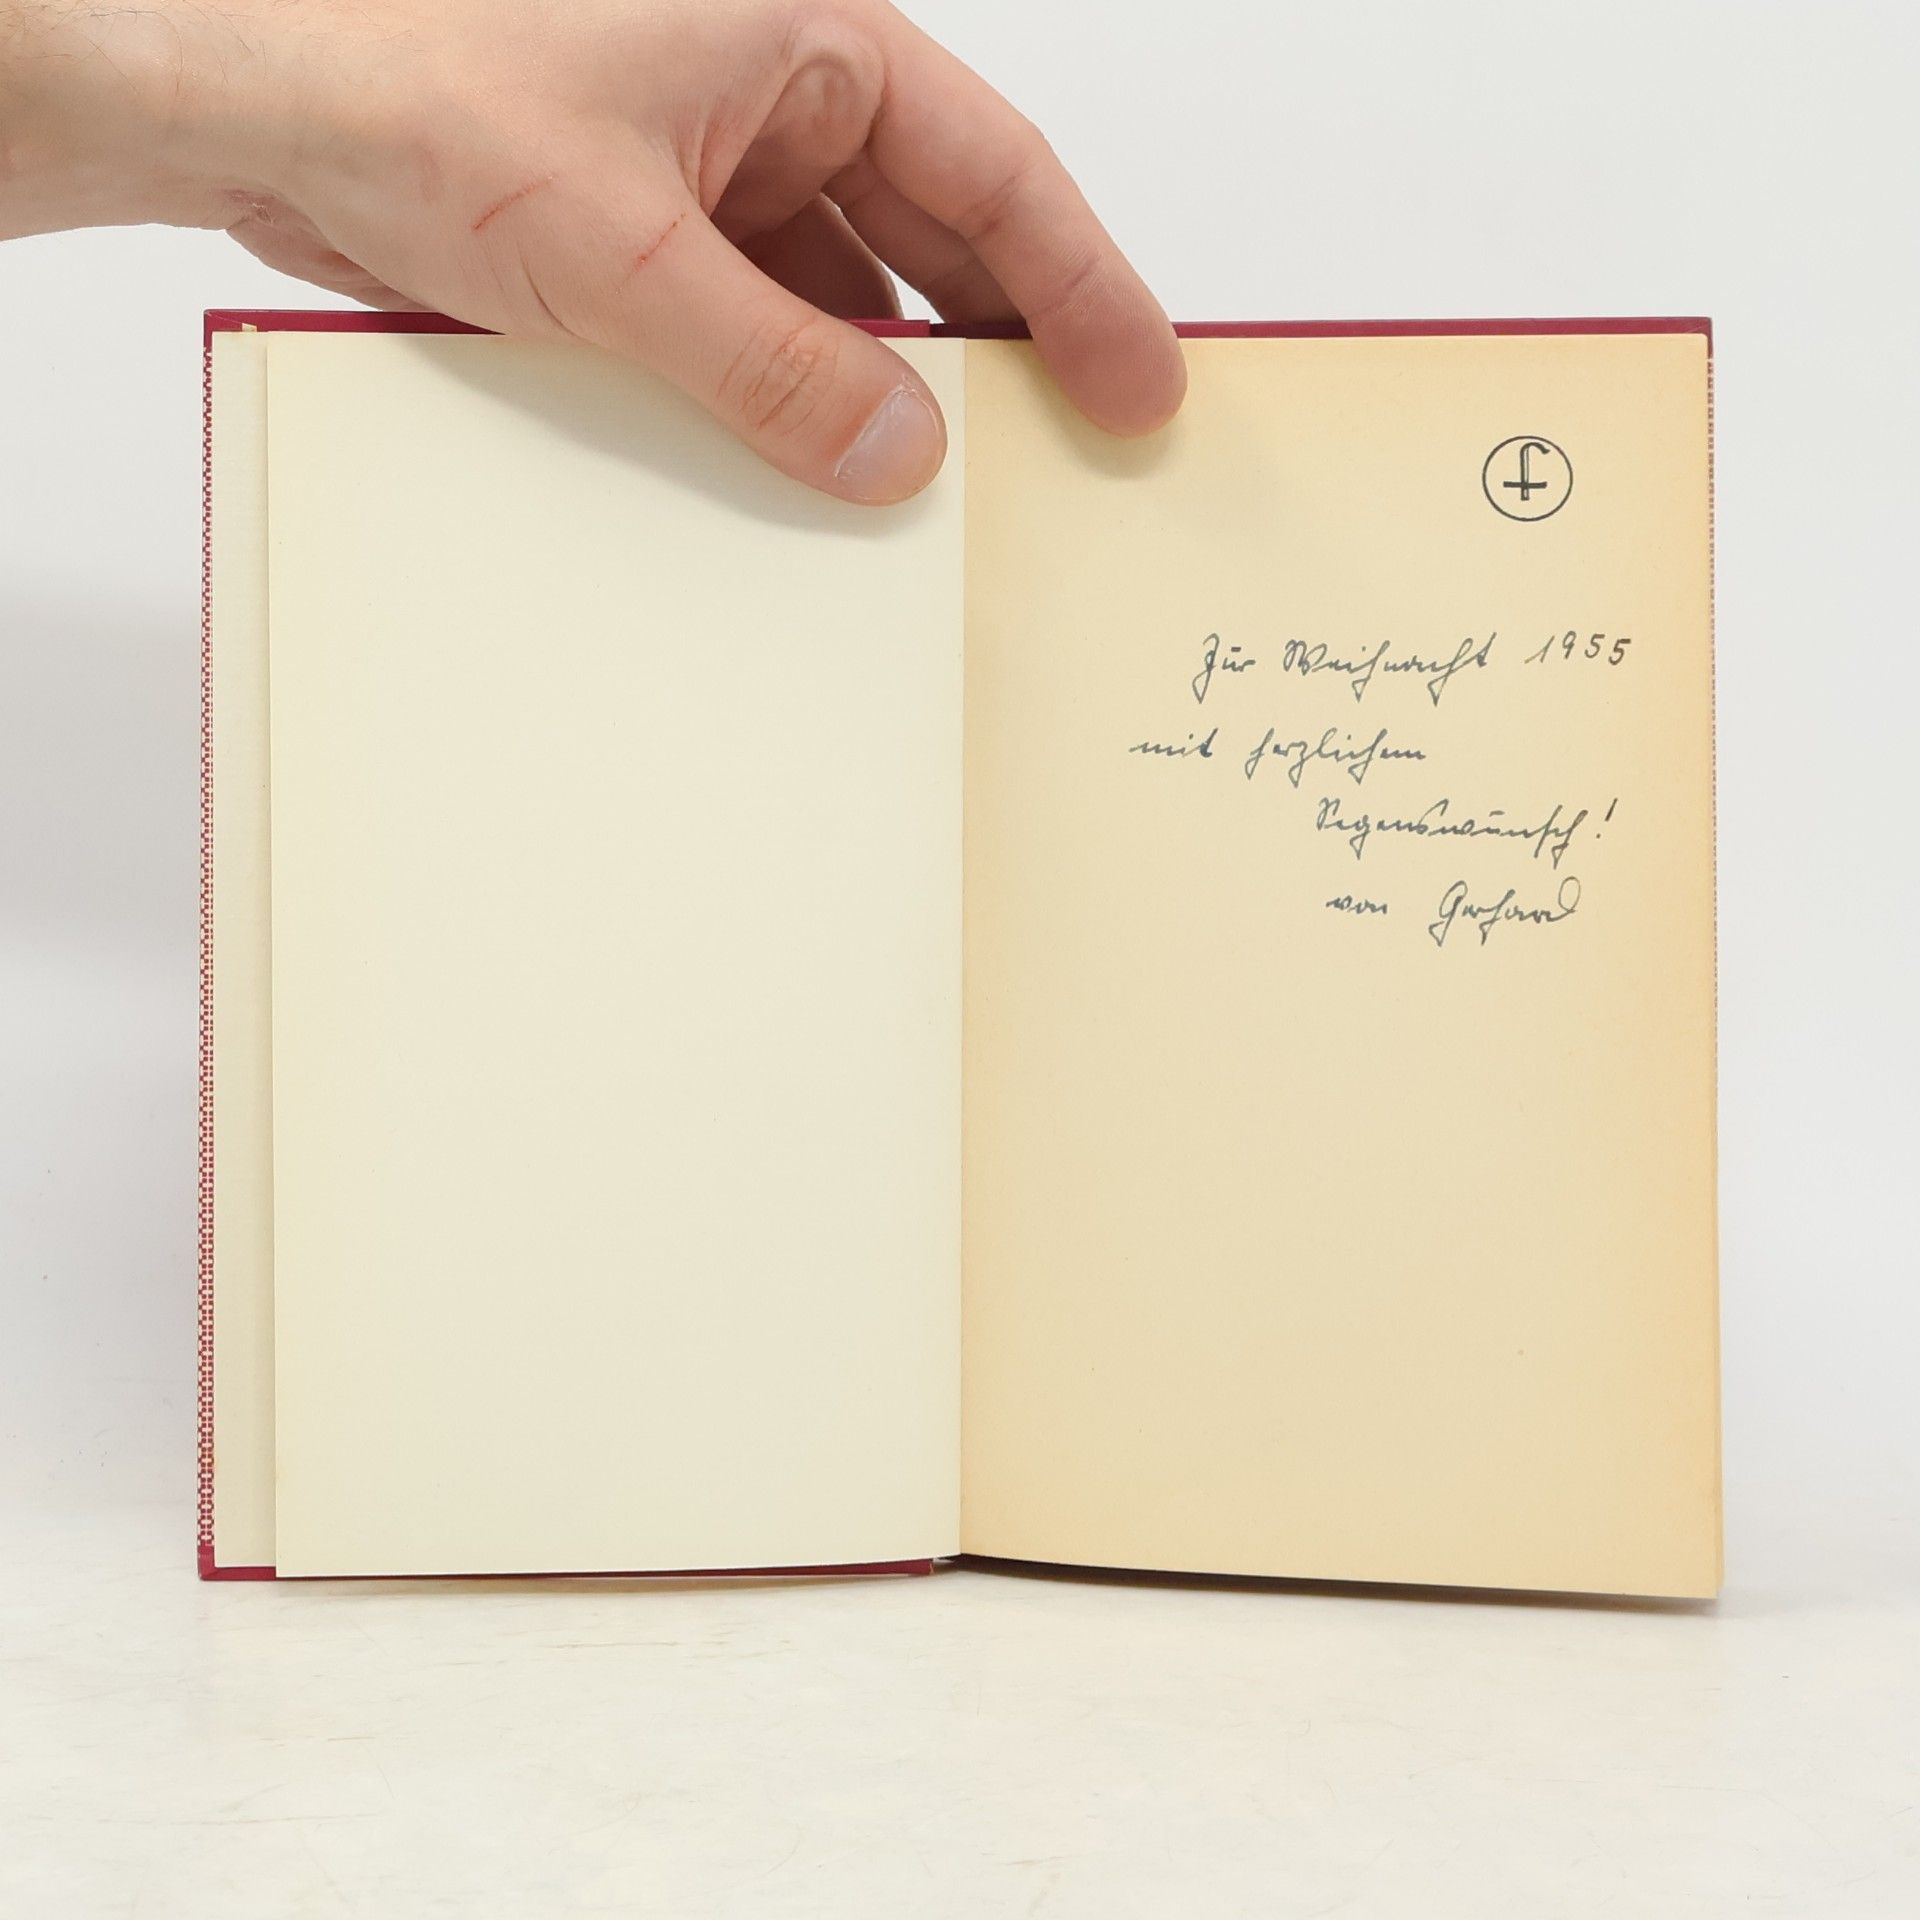 f
Zur Weihnacht 1955
mit herzlichem
Segenswunsch!
von Gerhard